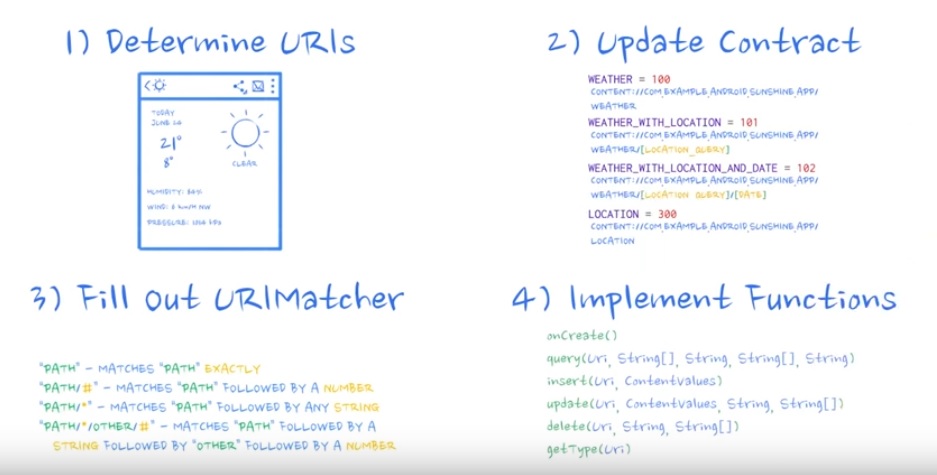 1) Determine URIs
TODAY
JUNE 26
21°
8°
CLEAR
HUMIDITY: 84%
PRESSURE:
2) Update Contract
WEATHER = 100
CONTENT://COM.EXAMPLE.ANDROID.SUNSHINE.APP/
WEATHER
WEATHER_WITH_LOCATION = 101
CONTENT://COM.EXAMPLE.ANDROID.SUNSHINE.APP/
WEATHER/[LOCATION_QUERY]
WEATHER_WITH_LOCATION_AND_DATE = 102
CONTENT://COM.EXAMPLE.ANDROID.SUNSHINE.APP/
WEATHER/[LOCATION QUERY]/[DATE]
LOCATION = 300
CONTENT://COM.EXAMPLE.ANDROID.SUNSHINE.APP/
LOCATION
3) Fill Out URIMatcher
"PATH" - MATCHES "PATH" EXACTLY
"PATH/#" - MATCHES "PATH" FOLLOWED BY A NUMBER
"PATH/*" - MATCHES "PATH" FOLLOWED BY ANY STRING
"PATH/*/OTHER/#" - MATCHES "PATH" FOLLOWED BY A
STRING FOLLOWED BY "OTHER" FOLLOWED BY A NUMBER
4) Implement Functions
onCreate()
query(Uri, String[], String, String[], String)
insert(Uri, ContentValues)
update(Uri, ContentValues, String, String[])
delete(Uri, String, String[])
getType(Uri)